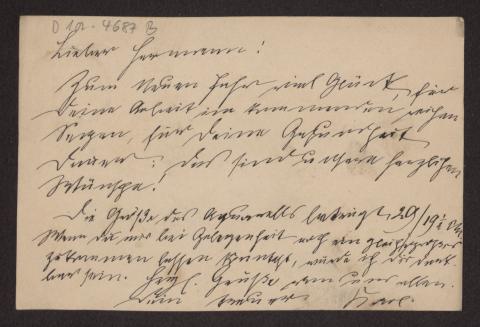 D 12. 4687 B
Lieber Hermann!
Zum Neuen Jahr viel Glück, für
Deine Arbeit im kommenden reichen
Segen, für Deine Gesundheit
Dauer: das sind unsere herzlichen
Wünsche.
Die Größe des Aquarells beträgt 29/19½ Om.
Wenn du mir bei Gelegenheit noch ein gleichgroßes
zukommen lassen könntest, würde ich dir dank-
bar sein. Herzl. Grüße von uns allen.
Dein treuer Karl.